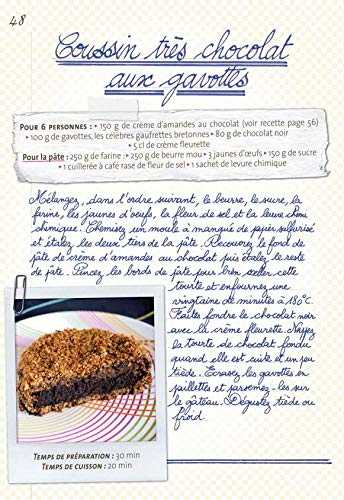 48
Coussin très chocolat
aux gavottes
POUR 6 PERSONNES : • 150 g de crème d'amandes au chocolat (voir recette page 56)
• 100 g de gavottes, les célèbres gaufrettes bretonnes • 80 g de chocolat noir
• 5 cl de crème fleurette
Pour la pâte : 250 g de farine • 250 g de beurre mou • 3 jaunes d'œufs • 150 g de sucre
• 1 cuillerée à café rase de fleur de sel • 1 sachet de levure chimique
Mélangez, dans l'ordre suivant, le beurre, le sucre, la
farine, les jaunes d'œufs, la fleur de sel et la levure
chimique. Chemisez un moule à manqué de papier sulfurisé
et étalez les deux tiers de la pâte. Recouvrez le fond de
pâte de crème d'amandes au chocolat puis étalez le reste
de pâte. Pincez les bords de pâte pour bien sceller cette
tourte et enfournez une
vingtaine de minutes à 180°C.
Faites fondre le chocolat noir
avec la crème fleurette. Nappez
la tourte de chocolat fondu
quand elle est cuite et un peu
tiède. Écrasez les gavottes en
paillettes et parsemez-les sur
le gâteau. Dégustez tiède ou
froid.
TEMPS DE PRÉPARATION : 30 min
TEMPS DE CUISSON : 20 min